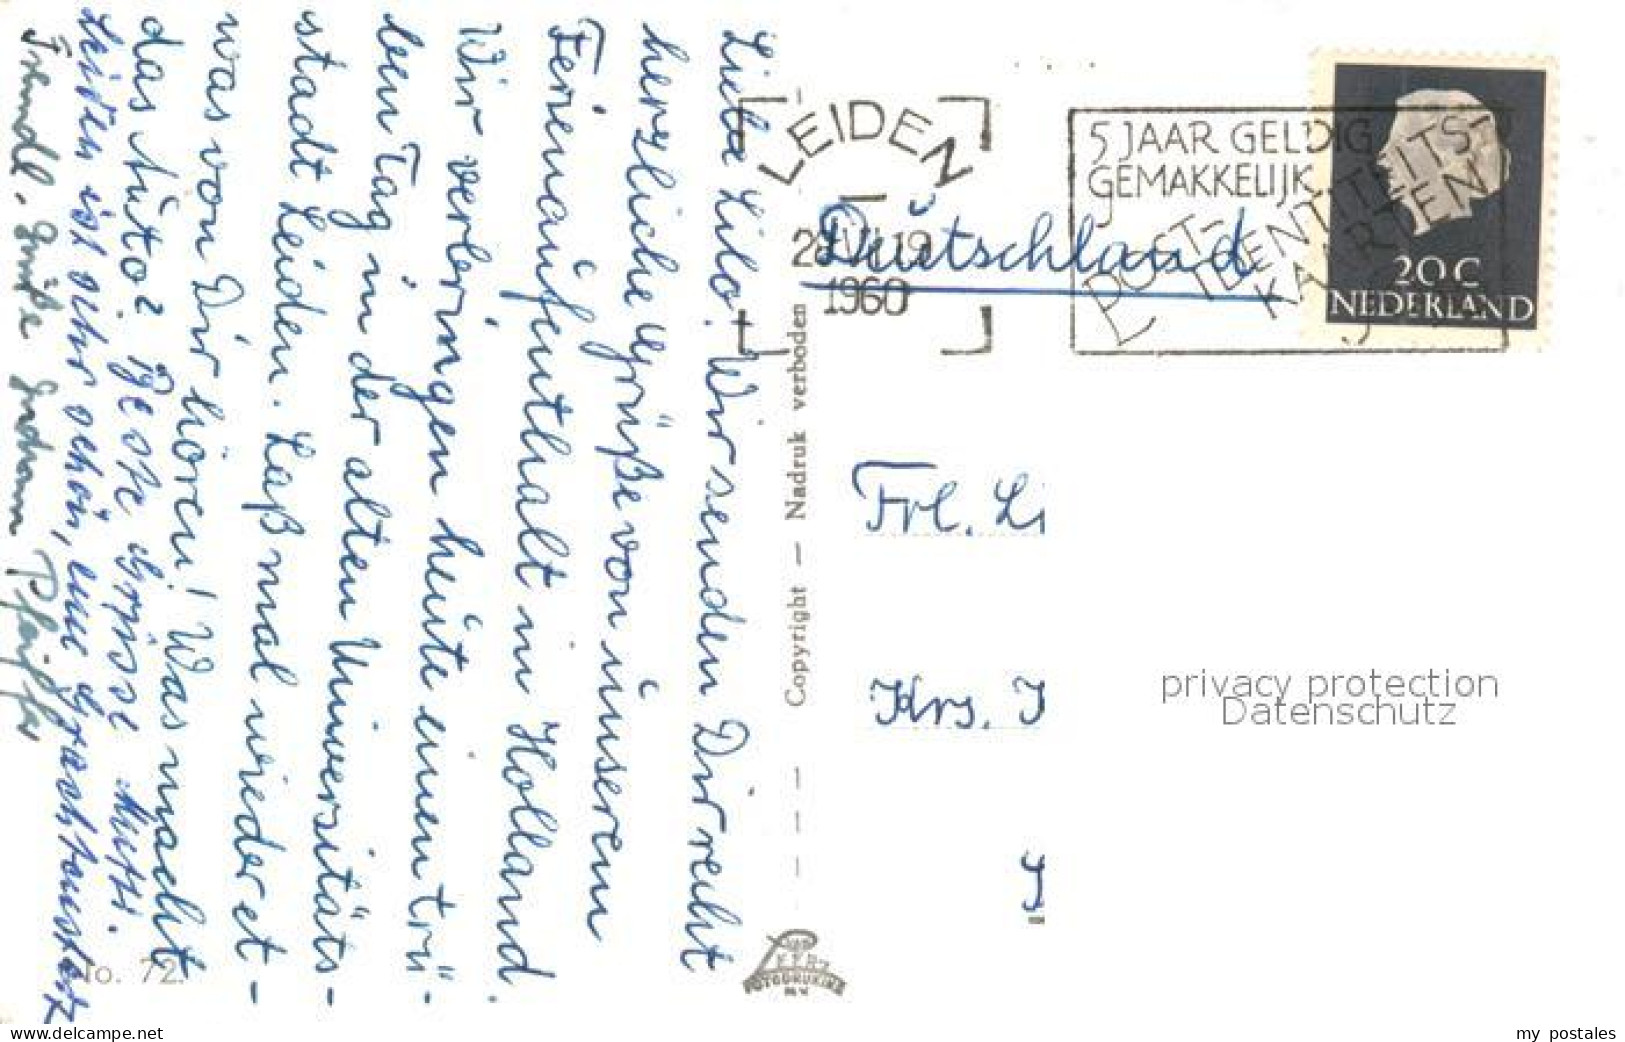 Liebe Lilo! Wir senden Dir recht
herzliche Grüße von unserem
Ferienaufenthalt in Holland.
Wir verbringen heute einen trü-
ben Tag in der alten Universitäts-
stadt Leiden. Laß mal wieder et-
was von Dir hören! Was macht
das Auto? Beste Grüsse Mutti.
Leiden ist sehr schön, eine Grachtenstadt
Freundl. Grüße Pfeiffer
No. 72.
Copyright — Nadruk verboden
VAN LEER'S FOTODRUKIND. N.V.
LEIDEN
1960
5 JAAR GELDIG
GEMAKKELIJK
POST-
IDENTITEITS-
KAARTEN
20 C
NEDERLAND
Deutschland
Frl. Li
Krs. I
privacy protection
Datenschutz
www.delcampe.net
my_postales